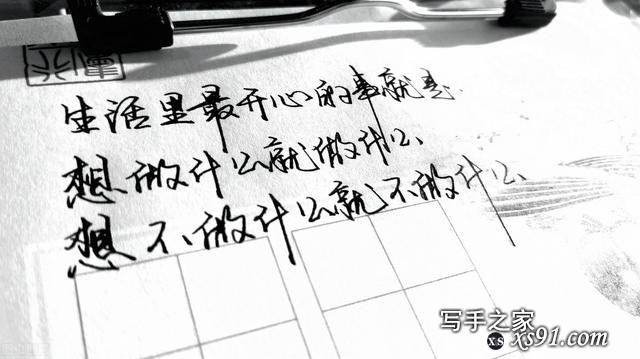 生活里最开心的事就是
想做什么就做什么、
想不做什么就不做什么、
写手之家
xs xs91.com